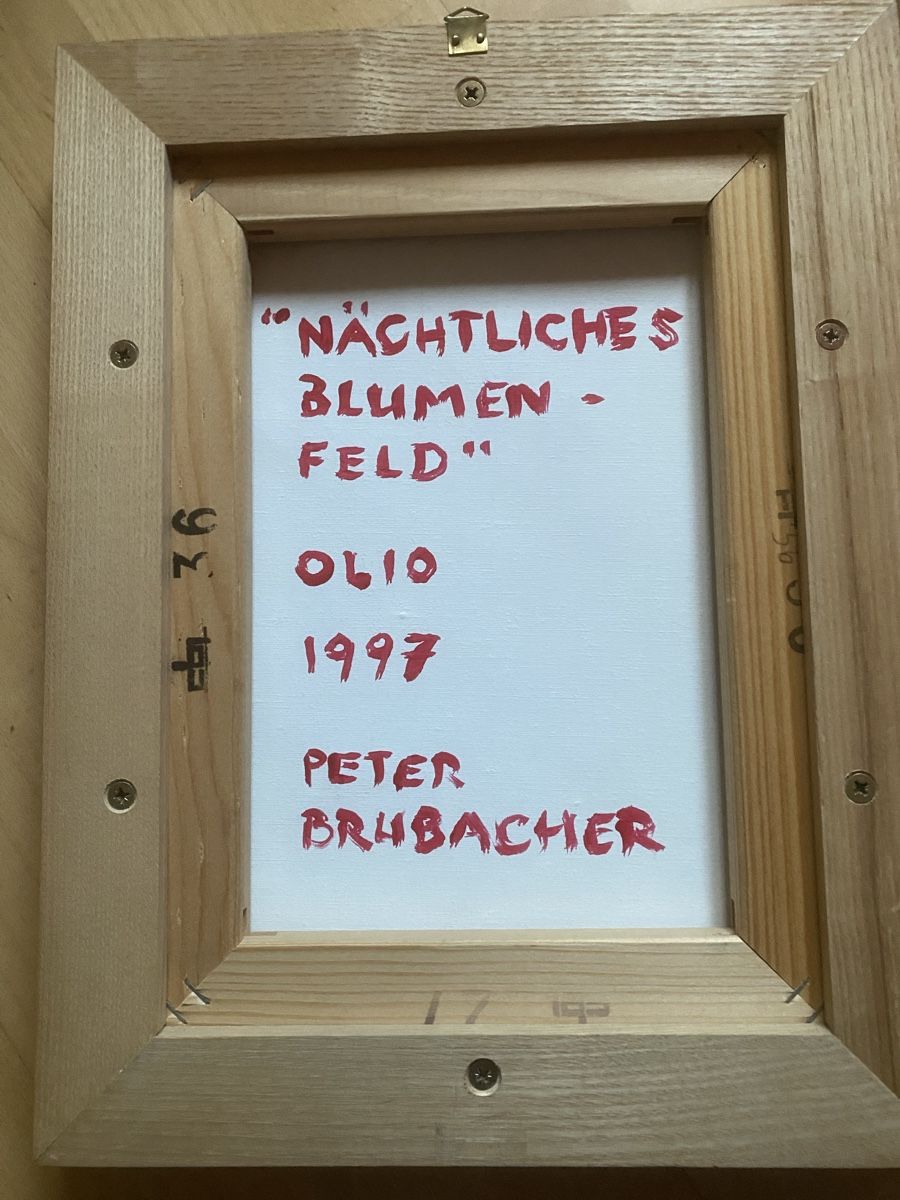 "NÄCHTLICHES
BLUMEN -
FELD"
OLIO
1997
PETER
BRUBACHER
36
17